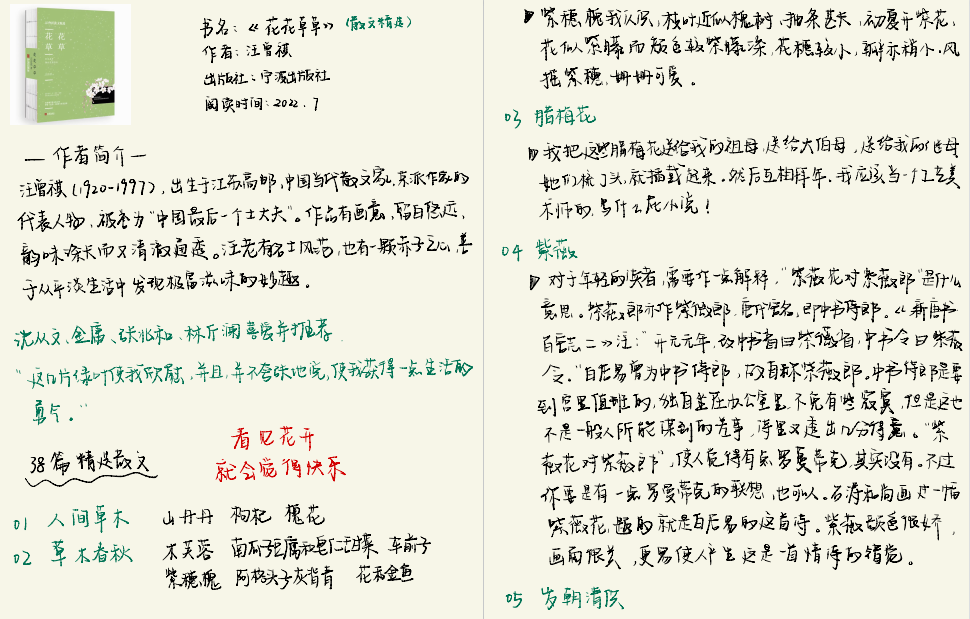 花花草草
书名：《花花草草》（散文精选）
作者：汪曾祺
出版社：宁波出版社
阅读时间：2022.7
— 作者简介 —
汪曾祺（1920-1997），出生于江苏高邮，中国当代散文家，京派作家的
代表人物，被誉为“中国最后一个士大夫”。作品有画意，
韵味绵长而又清澈通透。汪老有名士风范，也有一颗赤子之心，善
于从平淡生活中发现极富滋味的妙趣。
沈从文、金庸、张兆和、林斤澜喜爱并推荐
“这几片绿叶使我欣慰，并且，并不夸张地说，使我获得一点生活的
勇气。”
看见花开
就会觉得快乐
38篇精选散文
01 人间草木 山丹丹 枸杞 槐花
02 草木春秋 木芙蓉 南瓜子豆腐和皂仁甜菜 车前子
紫穗槐 阿格头子灰背青 花和金鱼
紫穗槐我认识，枝叶近似槐树，抽条甚长，初夏开紫花，
花似紫藤而颜色较紫藤深，花穗较小，瓣亦稍小。风
摇紫穗，姗姗可爱。
03 腊梅花
我把这些腊梅花送给我的祖母，送给大伯母，送给我的继母
她们梳了头，就插戴起来。然后互相拜年。我应该当一个工艺美
术师的，写什么屁小说！
04 紫薇
对于年轻的读者，需要作一点解释，“紫薇花对紫薇郎”是什么
意思。紫薇郎亦作紫微郎，唐代官名，即中书侍郎。《新唐书
百官志二》注：“开元元年，改中书省曰紫微省，中书令曰紫微
令。”白居易曾为中书侍郎，故自称紫薇郎。中书侍郎是要
到宫里值班的，独自坐在办公室里，不免有些寂寞，但是这也
不是一般人所能谋到的差事，诗里又透出几分得意。“紫
薇花对紫薇郎”，使人觉得有点罗曼蒂克，其实没有。不过
你要是有一点罗曼蒂克的联想，也可以。石涛和尚画过一幅
紫薇花，题的就是白居易的这首诗。紫薇颜色很娇，
画面很美，更易使人产生这是一首情诗的错觉。
05 岁朝清供